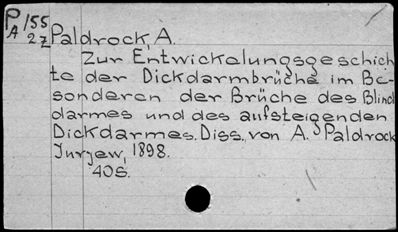 P/155
A 27 Paldrock, A.
Zur Entwickelungsgeschich
te der Dickdarmbrüche im Be-
sonderen der Brüche des Blind
darmes und des aufsteigenden
Dickdarmes. Diss. von A. Paldrock
Jurjew, 1898.
40S.